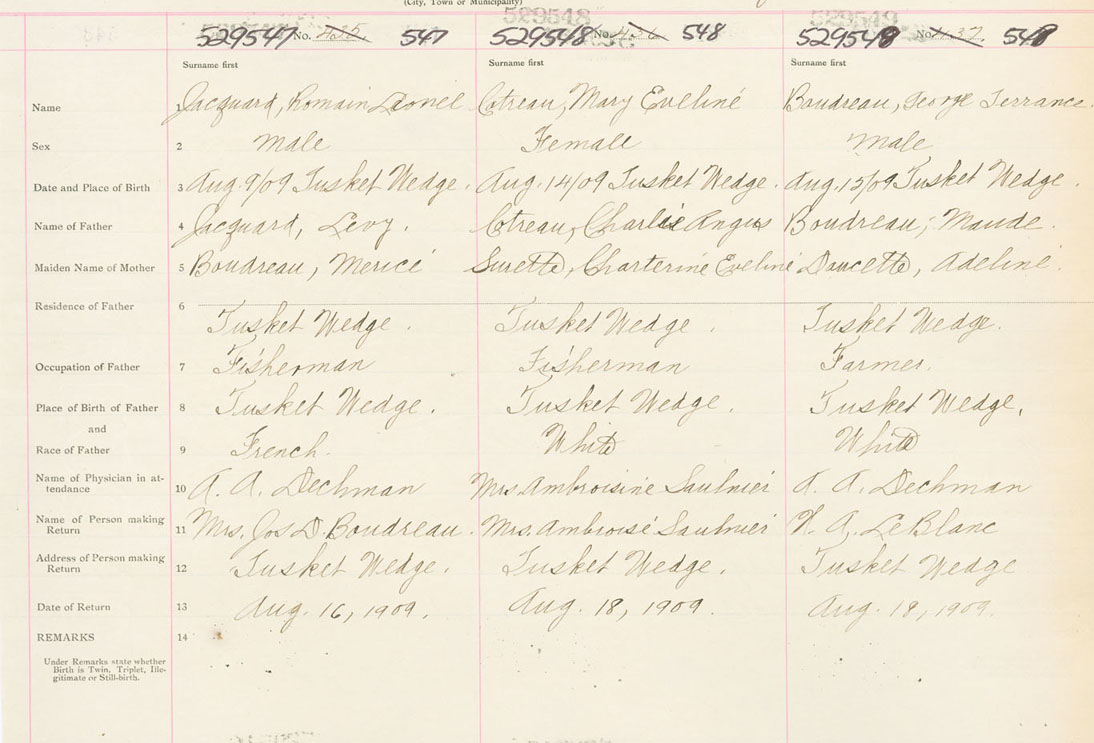 (City, Town or Municipality)
529548 529549
529547 No. 435. 547 529548 No. 436 548 529549 No. 437. 549
Surname first Surname first Surname first
Name 1 Jacquard, Romain Leonel Cotreau, Mary Eveline Boudreau, George Terrance.
Sex 2 Male Female Male
Date and Place of Birth 3 Aug. 9/09 Tusket Wedge. Aug. 14/09 Tusket Wedge. Aug. 15/09 Tusket Wedge.
Name of Father 4 Jacquard, Levy. Cotreau, Charlie Angus Boudreau, Maude.
Maiden Name of Mother 5 Boudreau, Merice Surette, Charterine Eveline Doucette, Adeline.
Residence of Father 6
Tusket Wedge. Tusket Wedge. Tusket Wedge.
Occupation of Father 7 Fisherman Fisherman Farmer.
Place of Birth of Father 8 Tusket Wedge. Tusket Wedge. Tusket Wedge,
and
Race of Father 9 French. White White
Name of Physician in at-
tendance 10 A. A. Dechman Mrs. Ambroisine Saulnier A. A. Dechman
Name of Person making
Return 11 Mrs. Jos D. Boudreau. Mrs. Ambroise Saulnier A. LeBlanc
Address of Person making
Return 12 Tusket Wedge. Tusket Wedge. Tusket Wedge
Date of Return 13 Aug. 16, 1909. Aug. 18, 1909. Aug. 18, 1909.
REMARKS 14
Under Remarks state whether
Birth is Twin, Triplet, Ille-
gitimate or Still-birth.